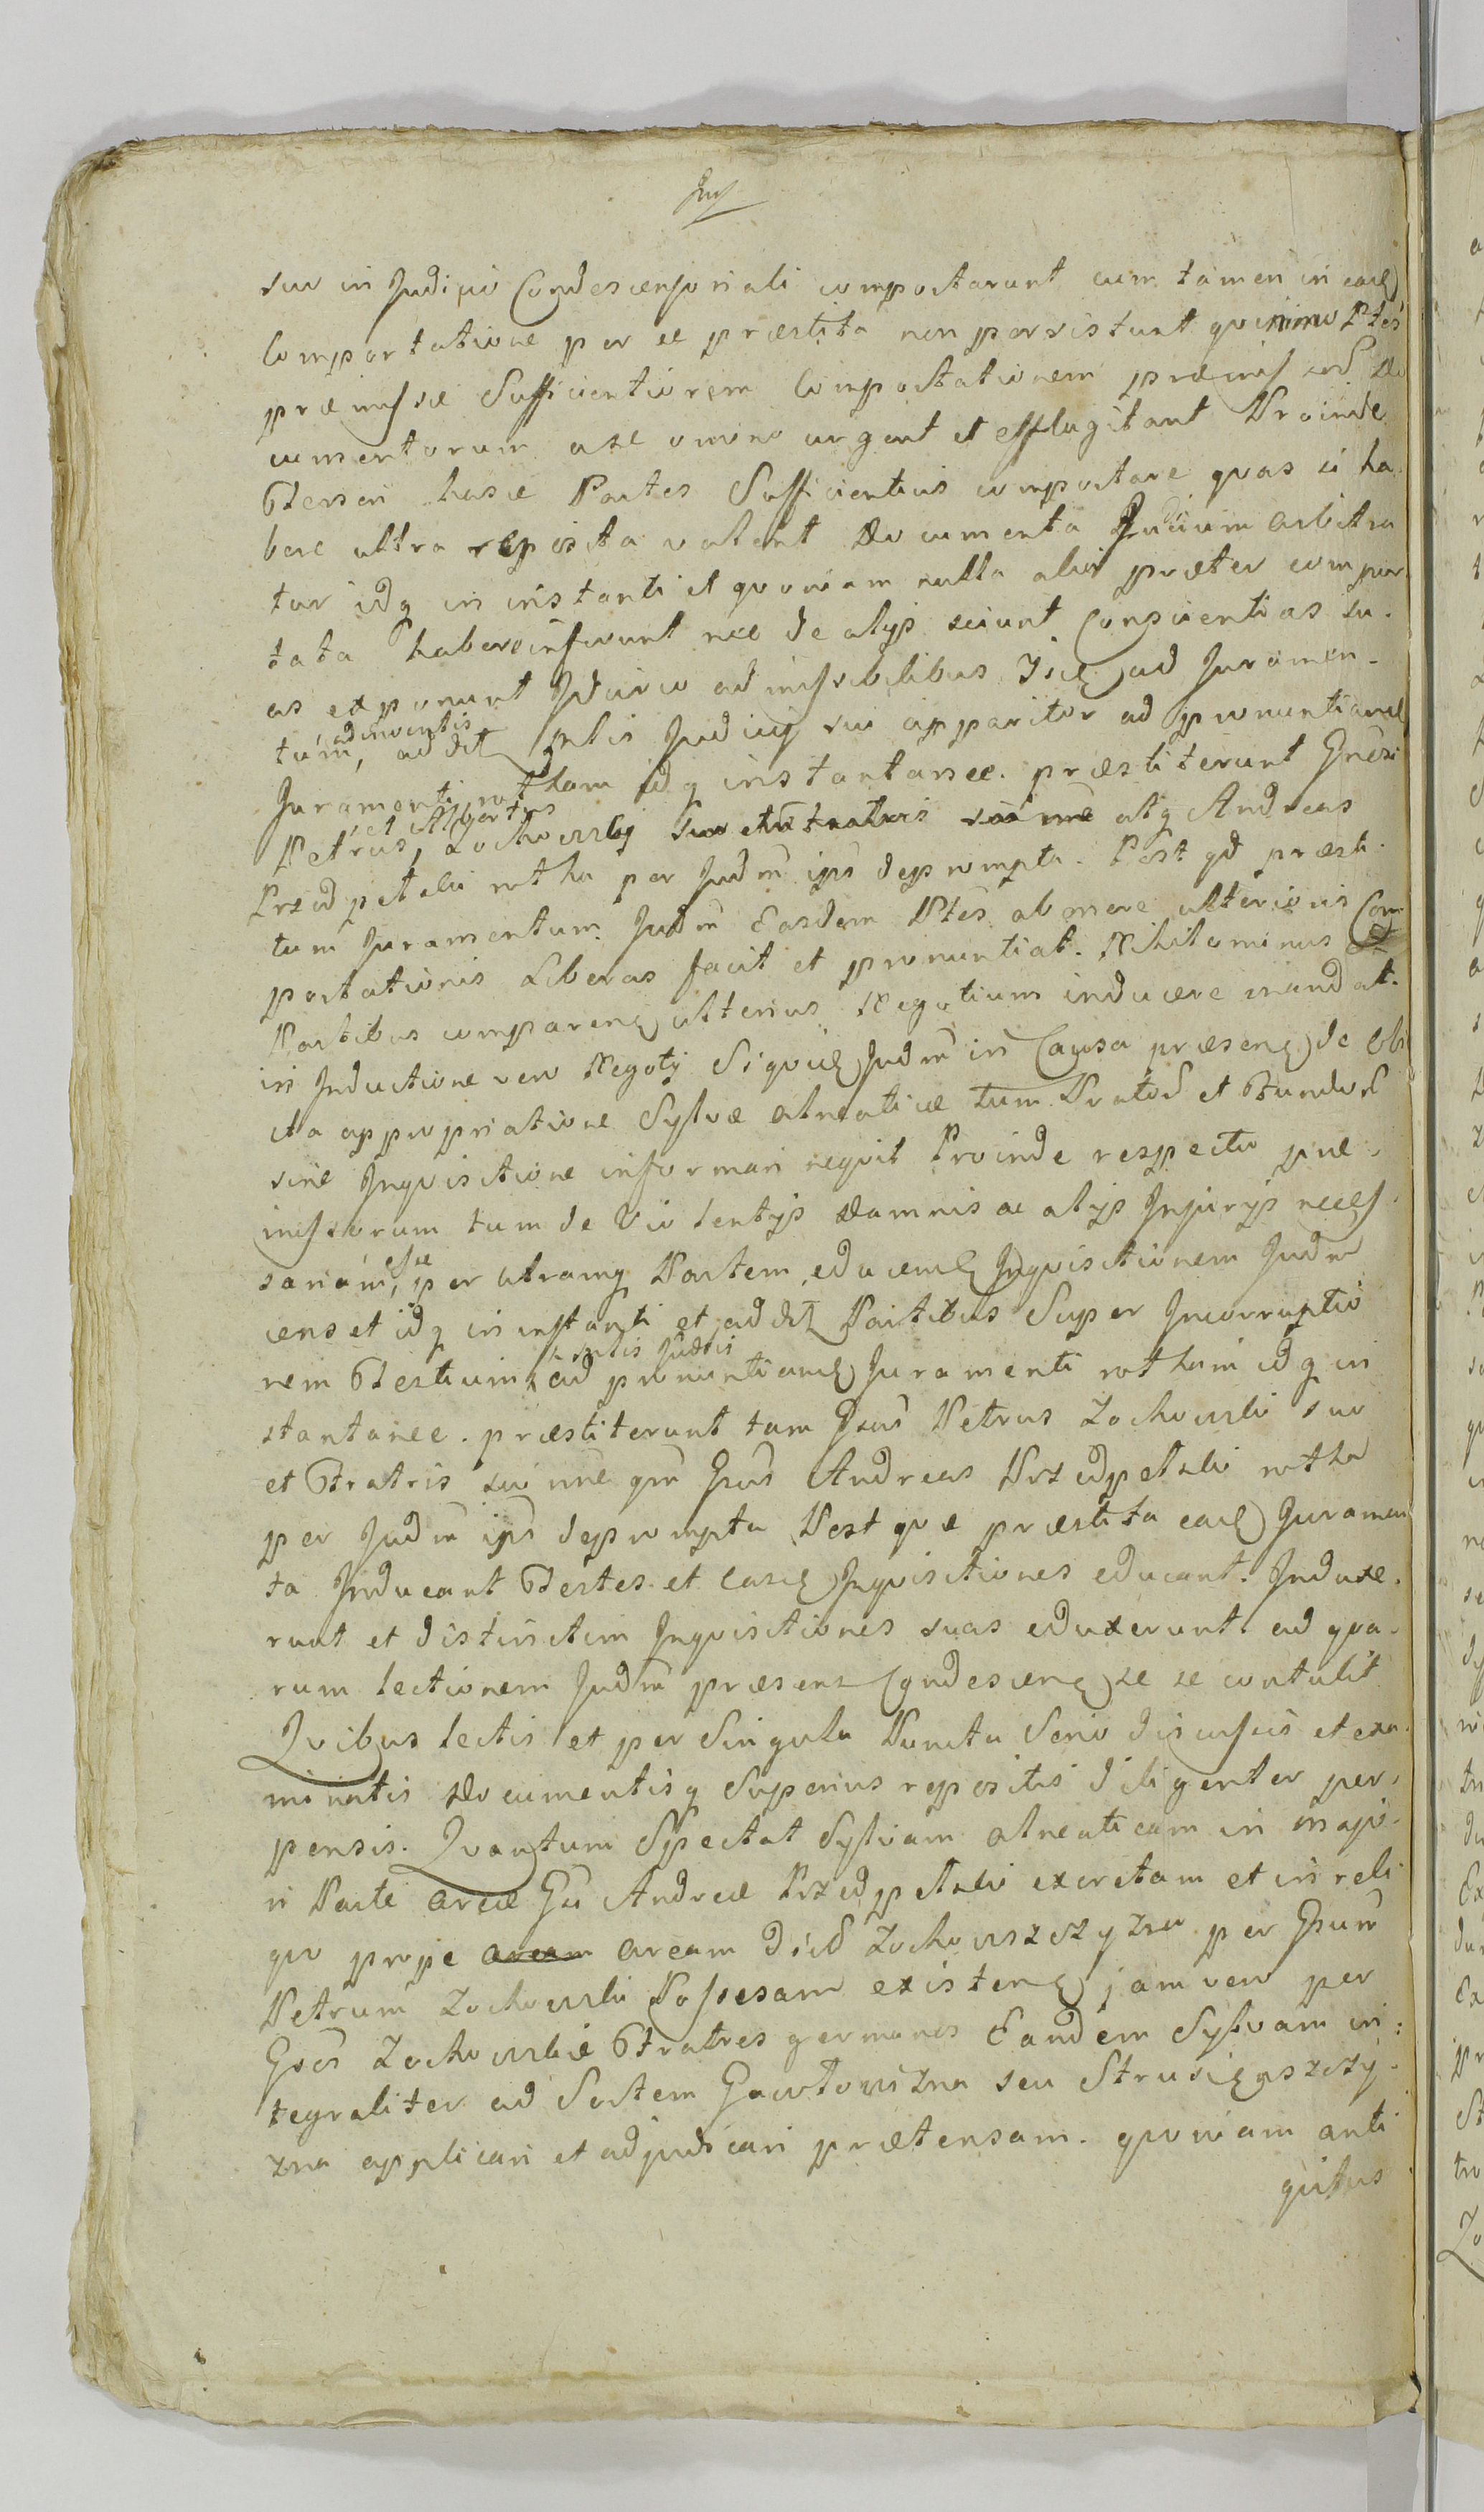 suo in Judicio Condescensoriali comportarunt cum tamen in eade
Comportatione per se præstita non persistunt quinimo Ptes
præmissæ Sufficientiorem Comportationem præmiss Do
cumentorum a se omino urgent et efflagitant Proinde
Tenseri hasce Partes Sufficientius comportare quas si ha
bere ultra reposita valent Documenta Judicium arbitra
tur idq in instanti et quoniam nulla alia præter compor
tata habere inferunt nec de alijs sciunt Conscientias su-
as exponunt Idcirco admissibilibus Isde ad Juramen-
tum, adinventis addit Judicij sui apparitor ad pronuntiand
Juramenti rotham idq instantanee. præstiterunt Gnesi
Petrus, et Albertus Zochowskij suo et fratris sui nne atq Andreas
Przedpelski rotha per Judm ipis deprompta. Post qd præsti-
tum Juramentum Judm Easdem Ptes ab onere ulterioris Com
portationis Liberas facit et pronuntiat. Nihilominus
Partibus comparen ulterius Negotium inducere mandat.
in Inductione vero Negotij Siquide Judm in Causa præsen de Obl
ata appropriatione Sylvæ alneaticæ tum Pratos et Fundos
sine Inquisitione informari nequit Proinde respectu præ-
missorum tum de Violentijs Damnis ac alijs Injurijs neces-
sariam, esse per utramq Partem educend Inquisitionem Judm
censet idq in instanti et addit Partibus Super Incorruptio
nem Testium, Judtis ad pronuntiand Juramenti rotham idq in
stantanee. præstiterunt tam Gsus Petrus Zochowski suo
et Fratris sui nne qm Gsus Andreas Przedpelski rotha
per Judm ipis deprompta Post quæ præstita eade Juramen
ta Inducant Testes et easde Inquisitiones educant. Induxe-
runt et distinctim Inquisitiones suas eduxerunt ad qua-
rum lectionem Judm præsens Condescen se se contulit
Quibus lectis et per Singula Puncta Serio discussis et exa-
minatis Documentisq Superius repositis diligenter per-
pensis. Quantum Spectat Sylvam alneaticam in majo-
ri Parte areæ Gsi Andreæ Przedpelski excretam et in reli
quo prope aream aream dict Zochowszczyzna per Gsum
Petrum Zochowski Possesam existen jam vero per
Gsos Zochowskie Fratres germanos Eandem Sylvam in-
tegraliter ad Sortem Gawtowizna seu Strusieszczy-
zna applicari et adjudicari prætensam. quoniam anti
quitus